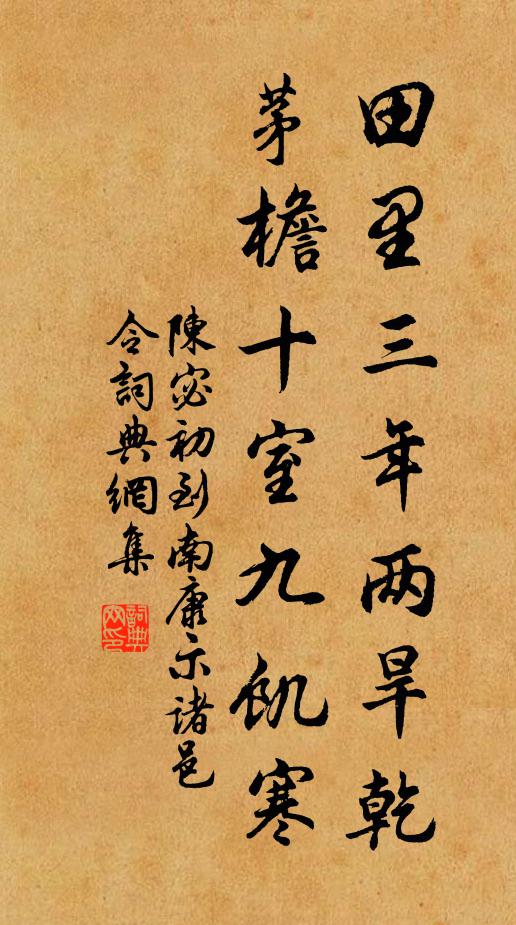 田里三年两旱乾
茅檐十室九飢寒
陳宓初到南康示諸邑
令詞典網集
詞典网印